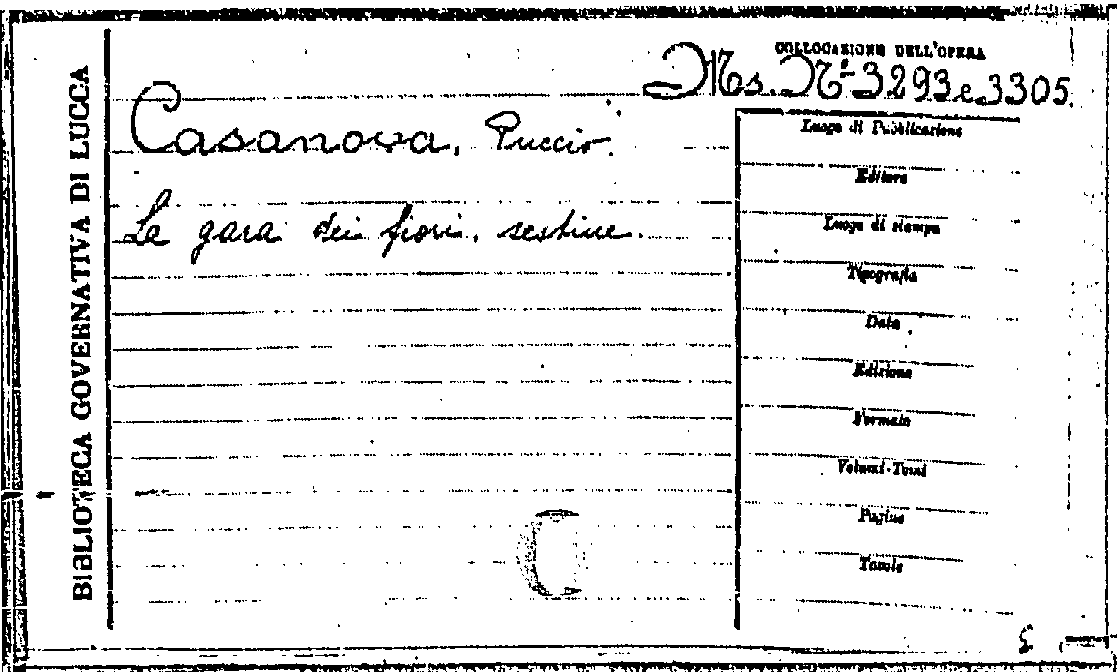 BIBLIOTECA GOVERNATIVA DI LUCCA
COLLOCAZIONE DELL'OPERA
Ms. N.º 3293 e 3305.
Casanova, Puccio.
La gara dei fiori, sestine.
Luogo di Pubblicazione
Editore
Luogo di stampa
Tipografia
Data
Edizione
Formato
Volumi-Tomi
Pagine
Tavole
C